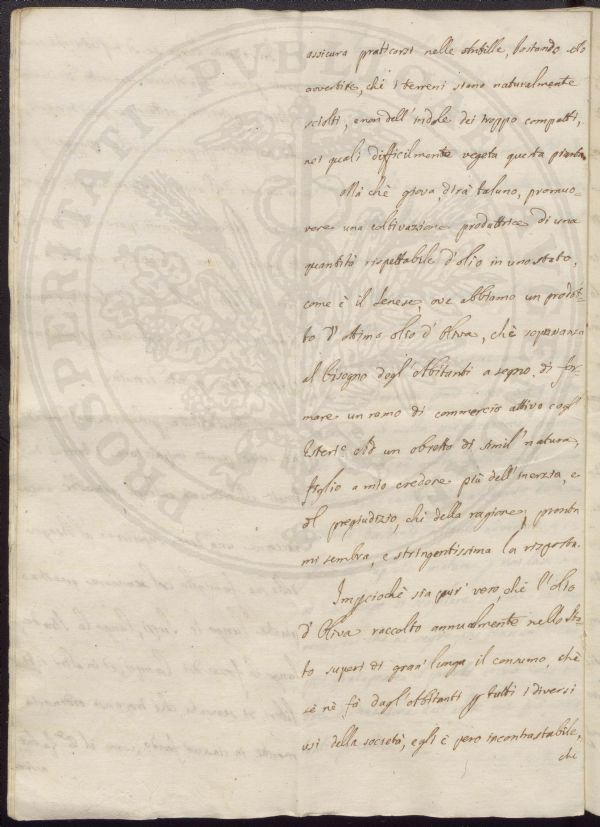 assicura praticarsi nelle Stubille, bastando solo
avvertire, che i terreni siano naturalmente
sciolti, e non dell'indole dei troppo compatti,
nei quali difficilmente vegeta questa pianta
Ma che giova, dirà taluno, promuo-
vere una coltivazione produttrice di una
quantità rispettabile d'olio in uno stato,
come è il Senese, ove abbiamo un prodot-
to d'ottimo olio d'Oliva, che sopravanza
al bisogno degl'Abitanti a segno di for-
mare un ramo di commercio attivo cogl'
Esteri? Ad un obietto di simil natura,
figlio a mio credere più dell'inerzia, e
del pregiudizio, che della ragione, pronta
mi sembra, e stringentissima la risposta.
Imperciochè sia pur vero, che l'olio
d'Oliva raccolto annualmente nello Sta-
to superi di gran lunga il consumo, che
se nè fà dagl'Abitanti p tutti i diversi
usi della società, egli è pero incontrastabile,
che
PROSPERITATI PVBLICAE